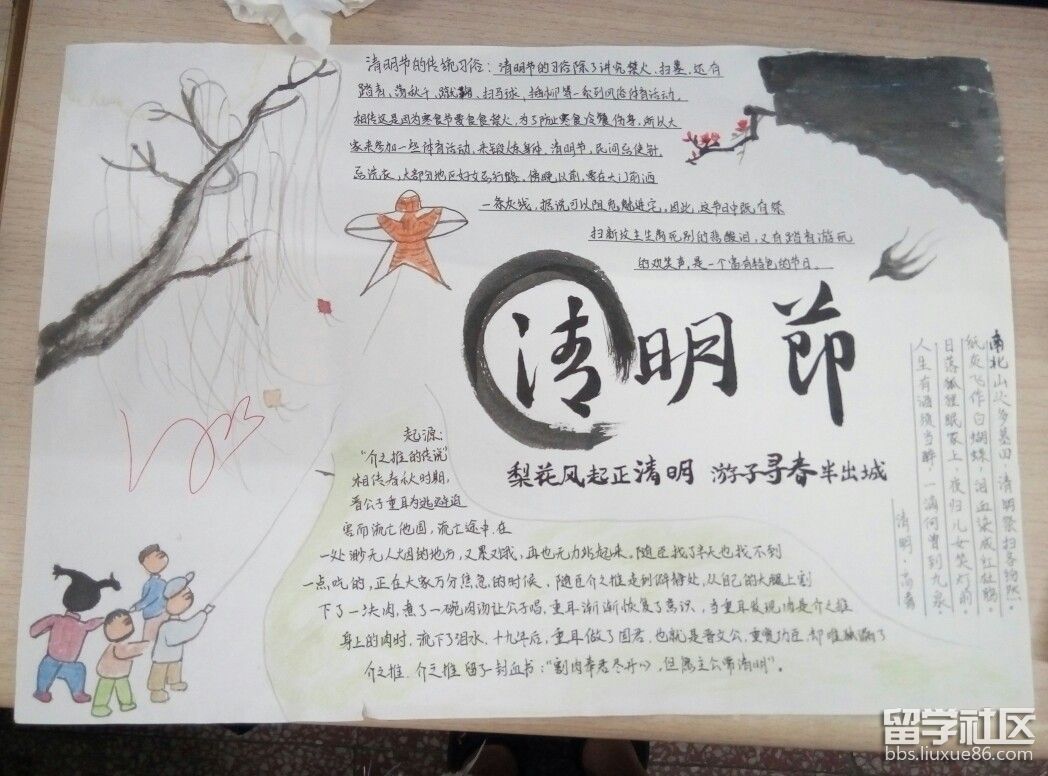 清明节的传统习俗：清明节的习俗除了讲究禁火、扫墓，还有
踏青、荡秋千、蹴鞠、打马球、插柳等一系列风俗体育活动。
相传这是因为寒食节要寒食禁火，为了防止寒食冷餐伤身，所以大
家来参加一些体育活动，来锻炼身体。清明节，民间忌使针，
忌洗衣，大部分地区妇女忌行路。傍晚以前，要在大门前洒
一条灰线，据说可以阻鬼魅进宅。因此，这节日中既有祭
扫新坟生生离死别的悲酸泪，又有踏青游玩
的欢笑声，是一个富有特色的节日。
清明節
梨花风起正清明 游子寻春半出城
起源：
“介之推的传说”
相传春秋时期，
晋公子重耳为逃避迫
害而流亡他国，流亡途中，在
一处渺无人烟的地方，又累又饿，再也无力站起来，随臣找了半天也找不到
一点吃的，正在大家万分焦急的时候，随臣介之推走到僻静处，从自己的大腿上割
下了一块肉，煮了一碗肉汤让公子喝，重耳渐渐恢复了意识，当重耳发现肉是介之推
身上的肉时，流下了泪水。十九年后，重耳做了国君，也就是晋文公，重赏功臣，却唯独漏了
介之推，介之推留了一封血书：“割肉奉君尽丹心，但愿主公常清明”。
南北山头多墓田，清明祭扫各纷然。
纸灰飞作白蝴蝶，泪血染成红杜鹃。
日落狐狸眠冢上，夜归儿女笑灯前。
人生有酒须当醉，一滴何曾到九泉。
清明·高翥
留学社区
bbs.liuxue86.com